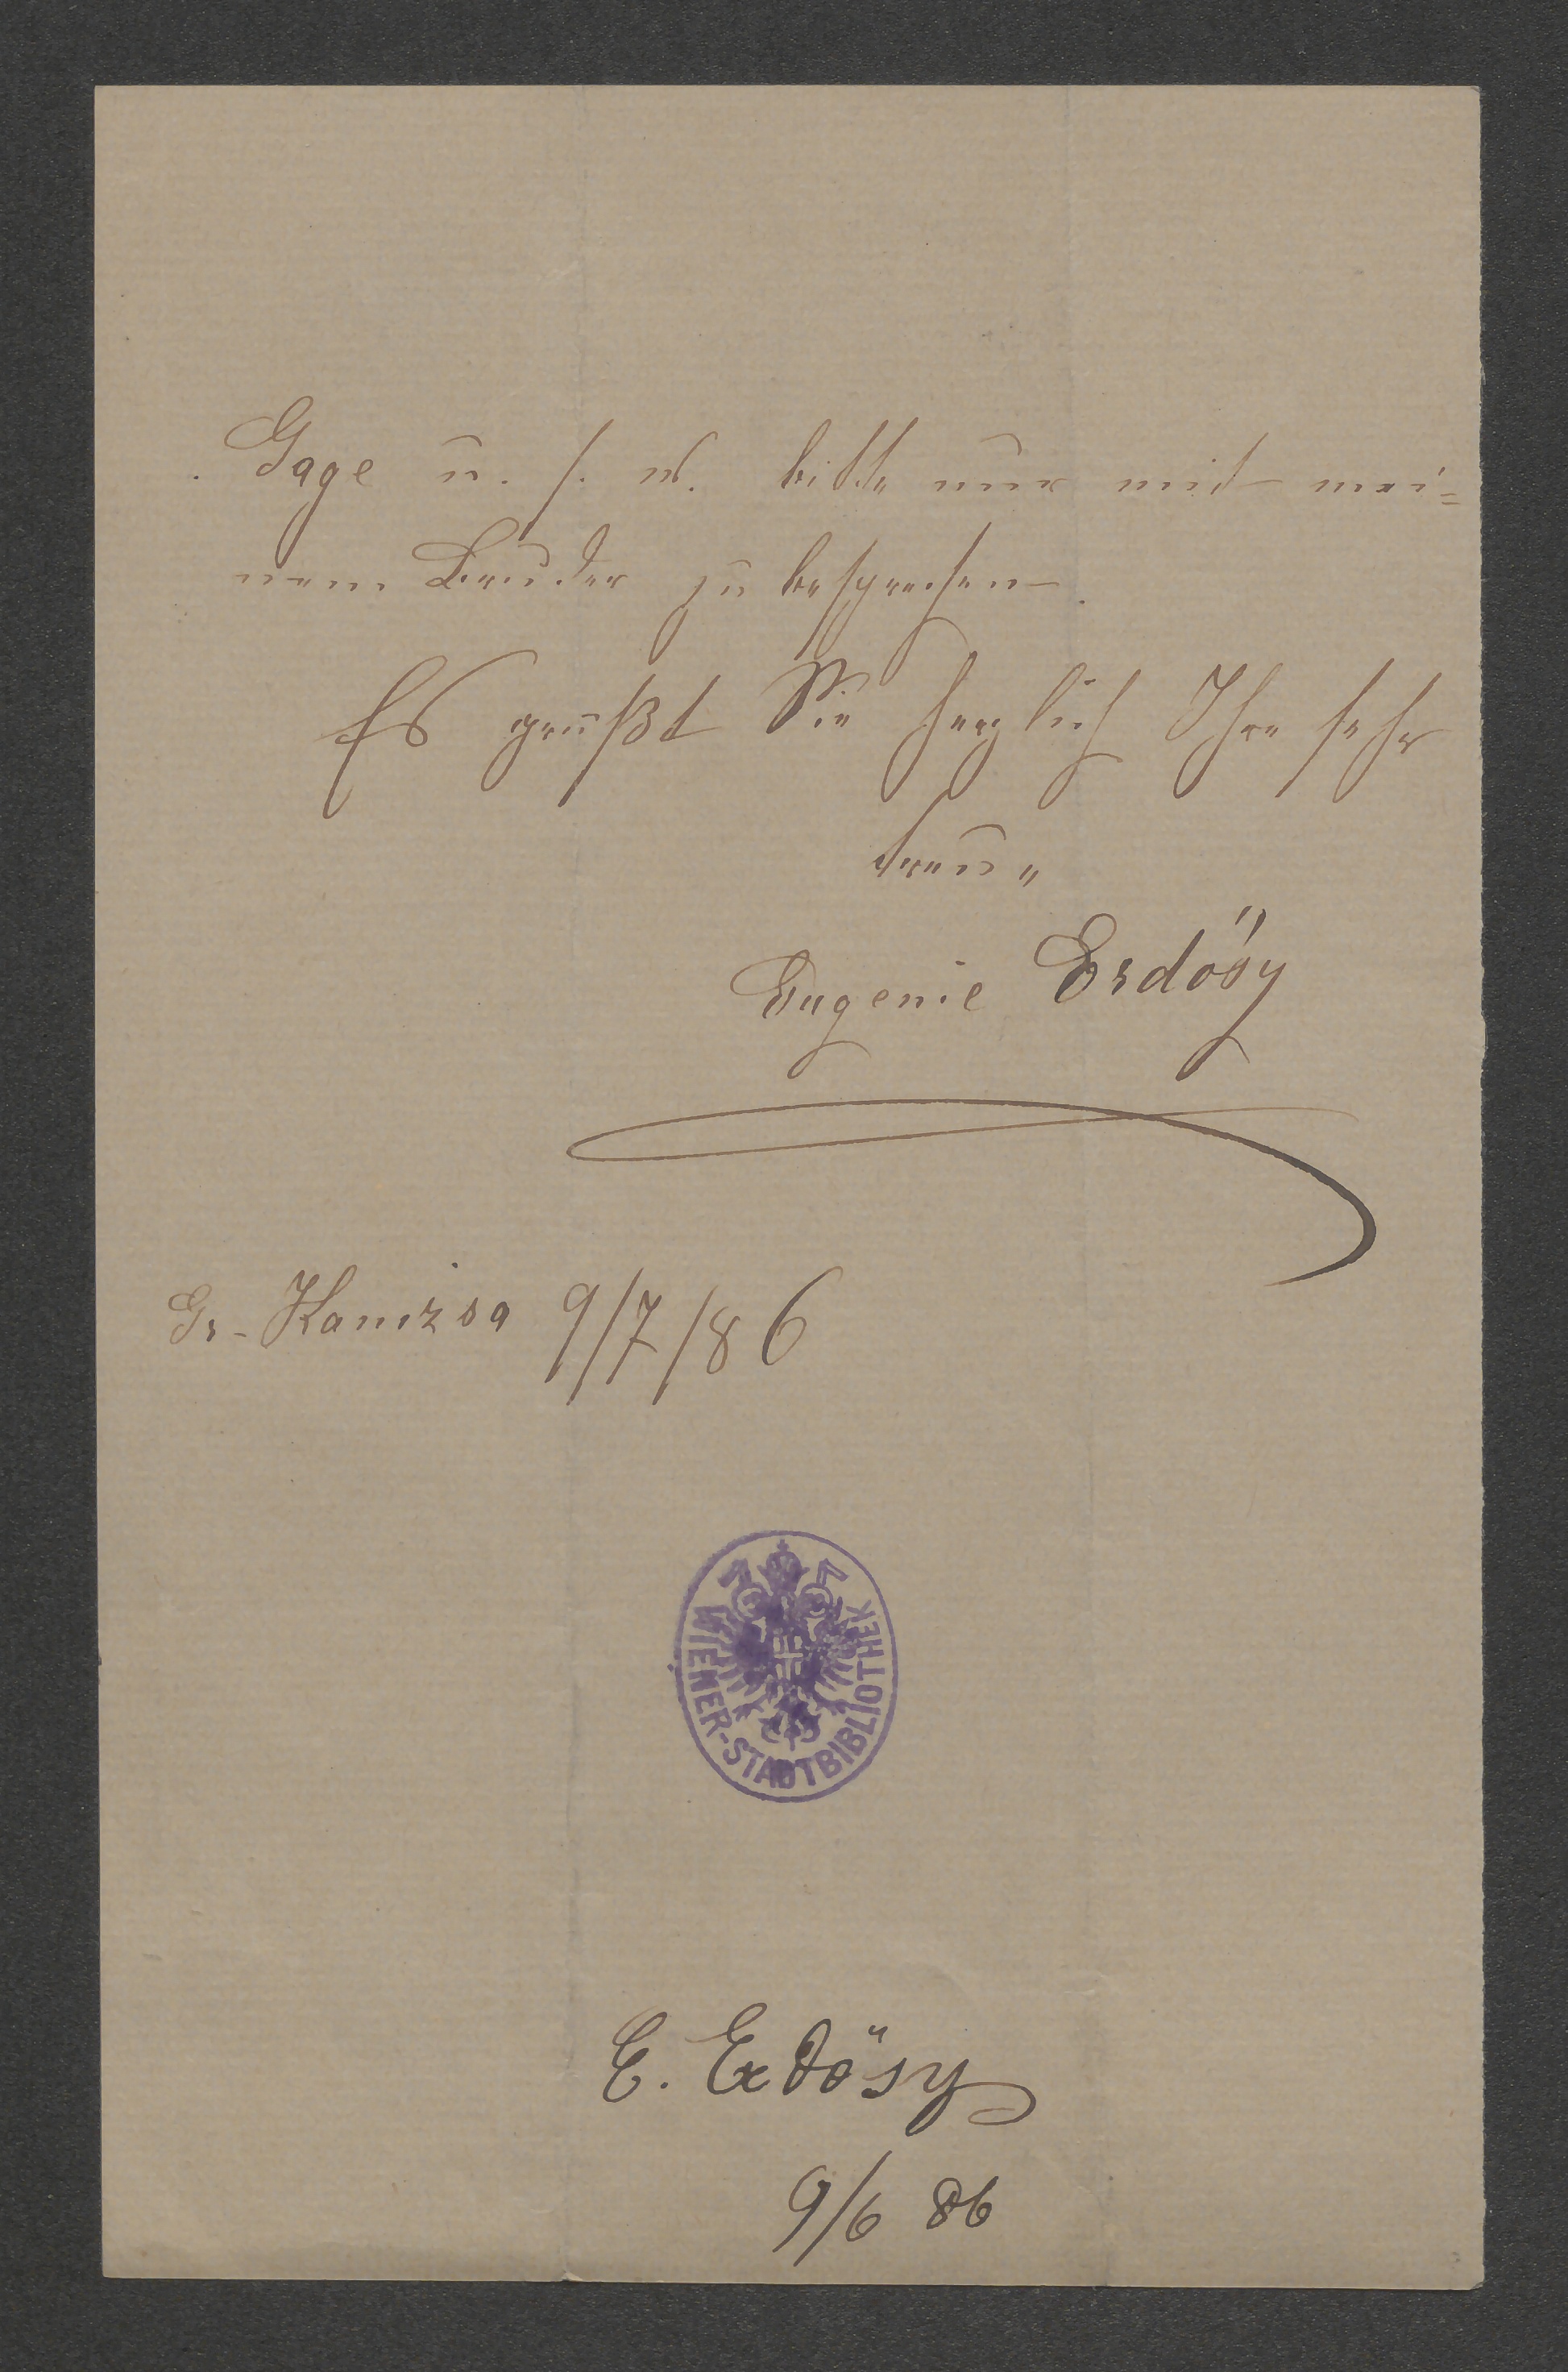 Gage u. s. w. bitte nur mit mei=
nem Bruder zu besprechen.
Es grüßt Sie herzlich Ihre sehr
treue
Eugenie Erdösy
Gr-Kanizsa 9/7/86
WIENER-STADTBIBLIOTHEK
E. Erdösy
9/6 86